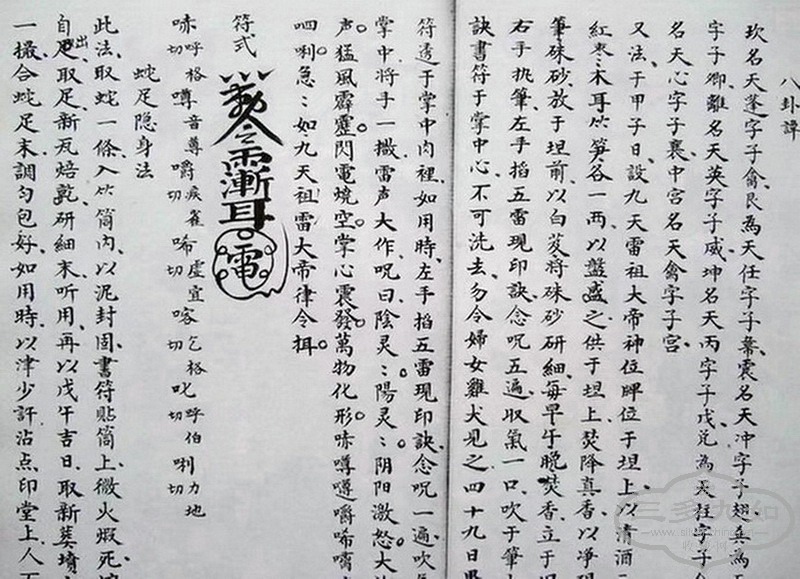 八卦譚
坎名天蓬字子禽艮為天任字子㐮震名天冲字子翅巽為
字子卿離名天英字子威坤名天丙字子戊兌為天柱字子
名天心字子襄中宮名天禽字子宮
又法于甲子日設九天雷祖大帝神位牌位于坦上以清酒
紅枣木耳竹笋谷一两以盤盛之供于坦上焚降真香以净
筆硃砂放于坦前以白芨將硃砂研細每早午晚焚香立于
右手执筆左手搯五雷现印訣念呪五遍取氣一口吹于筆
訣書符于掌中心不可洗去勿令婦女雞犬見之四十九日
符透于掌中肉裡如用時左手搯五雷现印訣念呪一遍吹
掌中将手一撒雷声大作呪曰陰灵〻陽灵〻阴阳激怒大
声猛風霹靂閃電燒空掌心震發萬物化形㖑噂嚼唏
呬唎急〻如九天祖雷大帝律令揖
符式
㖑呼格切噂音尊嚼疾雀切唏虚宜切喀乞格切叱呼伯切唎力地切
蛇足隐身法
此法取蛇一條入竹筒內以泥封固書符贴筒上微火煆死
自出足取足新瓦焙乾研細末听用再以戊午吉日取新葬墳
一撮合蛇足末調匀包好如用時以津少許沾点印堂上人
三多九如